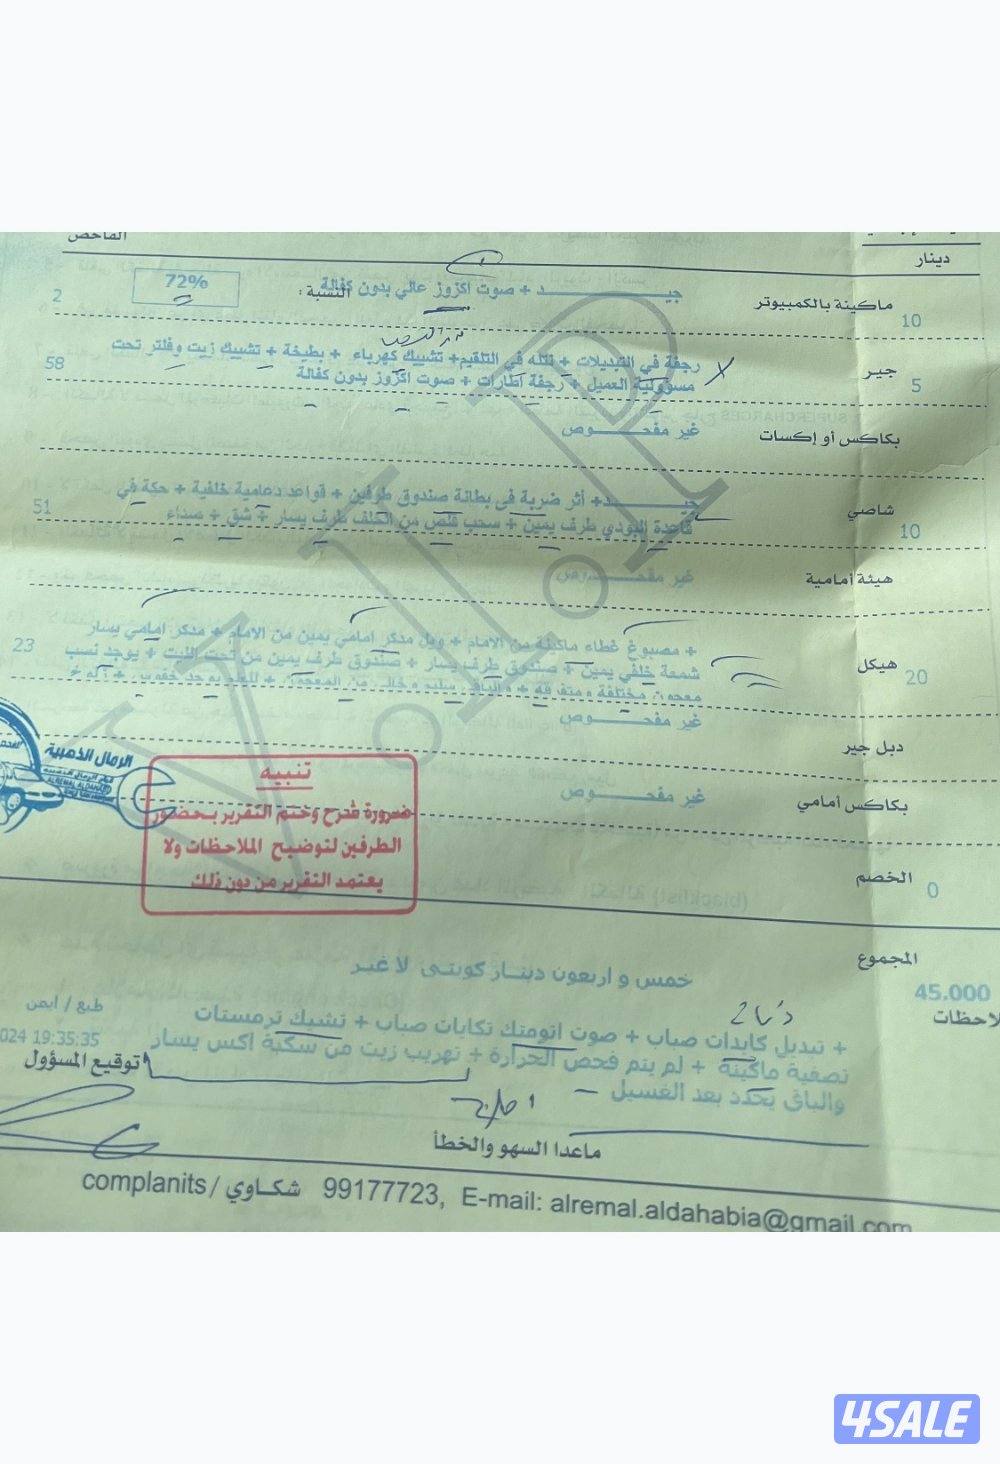 الفاحص
دينار
ماكينة بالكمبيوتر
10
جيـــــــد + صوت اكزوز عالي بدون كفالة
النسبة :
72%
2
جير
5
رجفة في التبديلات + نتله في التلقيم+ تشييك كهرباء + بطيخة + تشييك زيت وفلتر تحت
مسؤولية العميل + رجفة اطارات + صوت اكزوز بدون كفالة
58
بكاكس أو إكسات
غير مفحـــوص
شاصي
10
جيـــــد+ أثر ضربة في بطانة صندوق طرفين + قواعد دعامية خلفية + حكة في
قاعدة البودي طرف يمين + سحب قلص من الخلف طرف يسار + شق + صداء
51
هيئة أمامية
غير مفحـــوص
هيكل
20
+ مصبوغ غطاء ماكينة من الامام + ويل مدكر امامي يمين من الامام + مدكر امامي يسار
شمعة خلفي يمين + صندوق طرف يسار + صندوق طرف يمين من تحت الليت + يوجد نسب
معجون مختلفة ومتفرقة + والباقي سليم وخالي من المعجون
23
دبل جير
غير مفحـــوص
بكاكس أمامي
غير مفحـــوص
الرمال الذهبية
تنبيه
ضرورة شرح وختم التقرير بحضور
الطرفين لتوضيح الملاحظات ولا
يعتمد التقرير من دون ذلك
الخصم
0
المجموع
45.000
خمس و اربعون دينار كويتي لا غير
طبع / أيمن
+ تبديل كابدات صباب + صوت اتومتك تكايات صباب + تشييك ترمستات
تصفية ماكينة + لم يتم فحص الحرارة + تهريب زيت من سكبة اكس يسار
والباقي يحدد بعد الغسيل
024 19:35:35
توقيع المسؤول
ماعدا السهو والخطأ
complanits / شكاوي 99177723, E-mail: alremal.aldahabia@gmail.com
V.I.P
4SALE